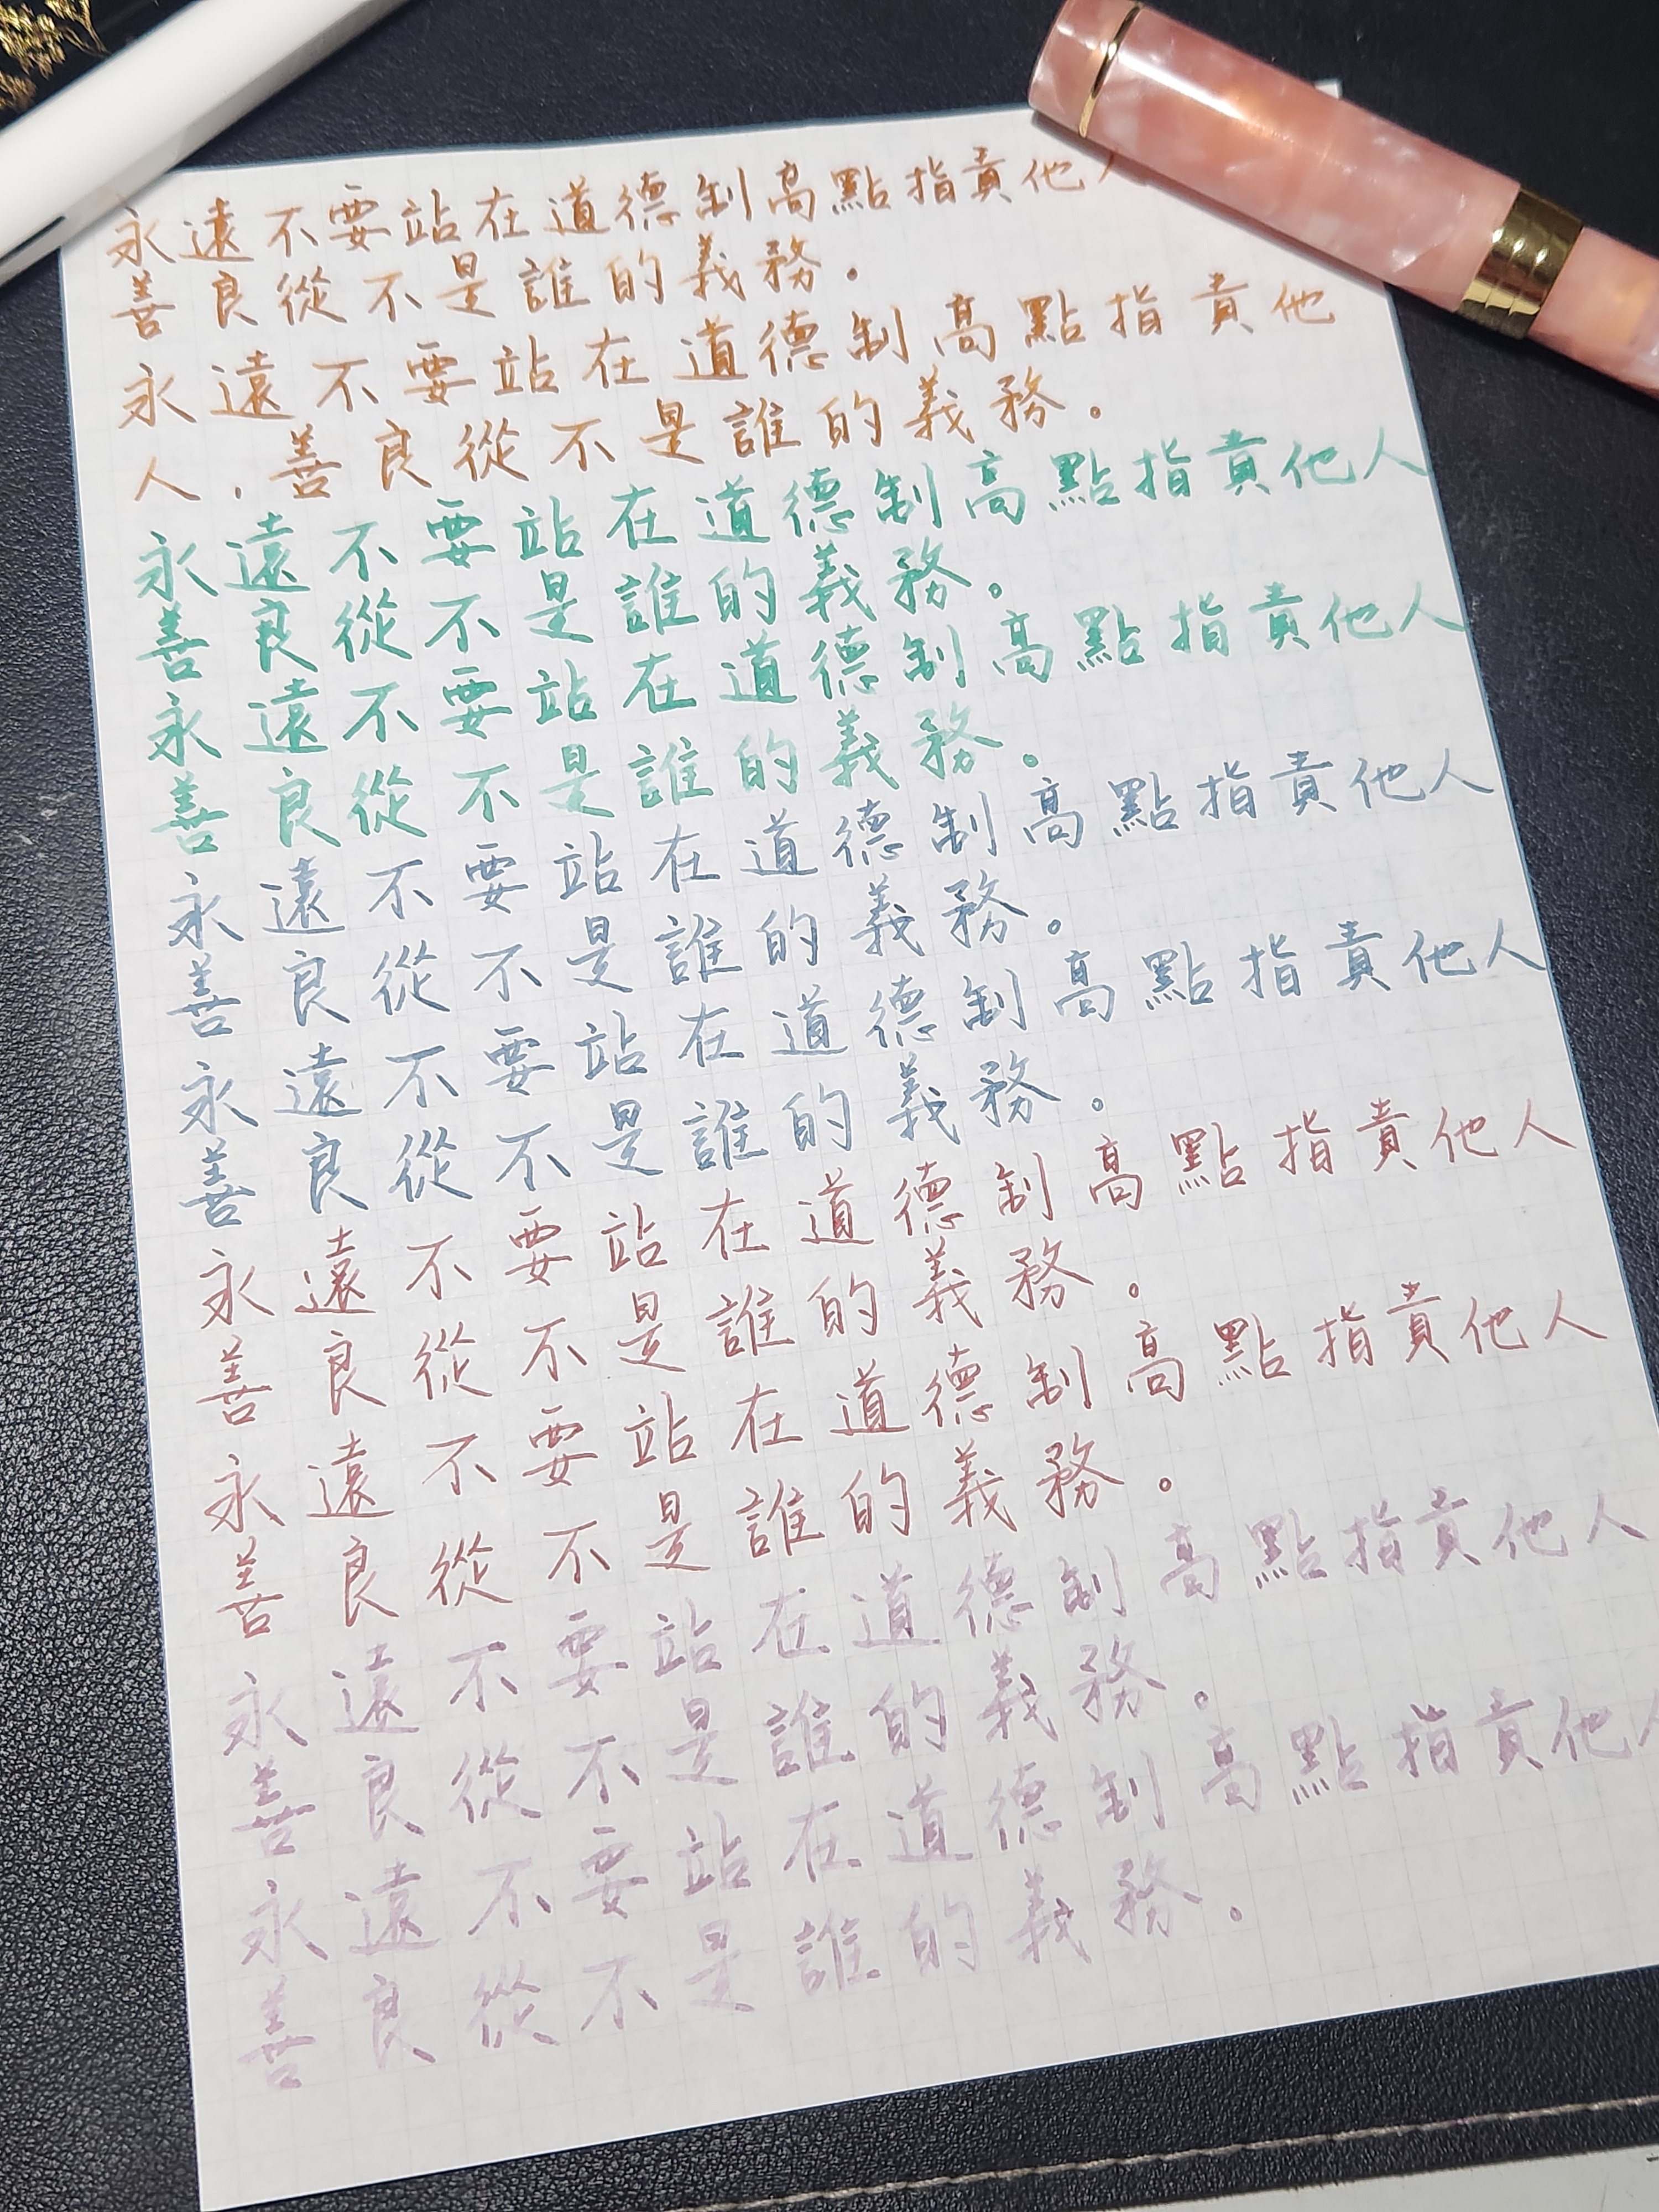 永遠不要站在道德制高點指責他人
善良從不是誰的義務。
永遠不要站在道德制高點指責他
人，善良從不是誰的義務。
永遠不要站在道德制高點指責他人
善良從不是誰的義務。
永遠不要站在道德制高點指責他人
善良從不是誰的義務。
永遠不要站在道德制高點指責他人
善良從不是誰的義務。
永遠不要站在道德制高點指責他人
善良從不是誰的義務。
永遠不要站在道德制高點指責他人
善良從不是誰的義務。
永遠不要站在道德制高點指責他人
善良從不是誰的義務。
永遠不要站在道德制高點指責他人
善良從不是誰的義務。
永遠不要站在道德制高點指責他人
善良從不是誰的義務。